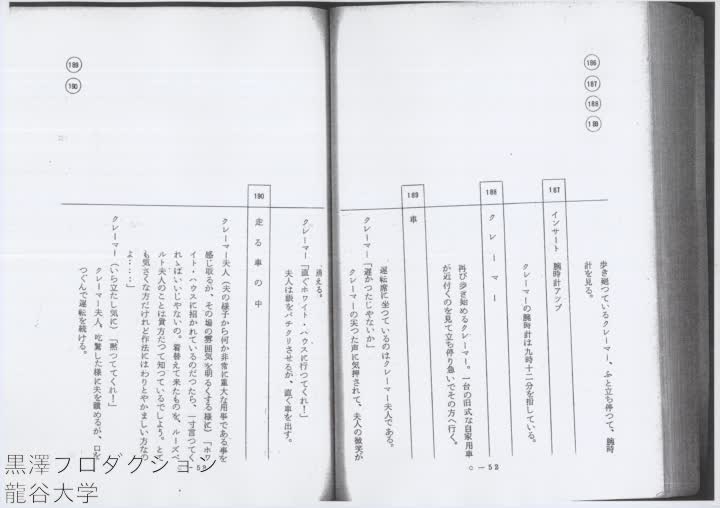 186
187
188
189
歩き廻つているクレーマー、ふと立ち停つて、腕時
計を見る。
187
インサート 腕時計アツプ
クレーマーの腕時計は九時十二分を指している。
188
クレーマー
再び歩き始めるクレーマー。一台の旧式な自家用車
が近付くのを見て立ち停り急いでその方へ行く。
189
車
運転席に坐つているのはクレーマー夫人である。
クレーマー「遅かつたじやないか」
クレーマーの尖つた声に気押されて、夫人の微笑が
C-52
189
190
消える。
クレーマー「直ぐホワイト・ハウスに行つてくれ!」
夫人は眼をパチクリさせるが、直ぐ車を出す。
190
走る車の中
クレーマー夫人(夫の様子から何か非常に重大な用事である事を
感じ取るが、その場の雰囲気を明るくする様に)「ホワ
イト・ハウスに招かれているのだつたら、一寸言つてく
れゝばいいじやないの。着替えて来たものを、ルーズベ
ルト夫人のことは貴方だつて知つているでしよう。とて
も気さくな方だけれど作法にはわりとやかましい方なの
よ……」
クレーマー(いら立たし気に)「黙つててくれ!」
クレーマー夫人、吃驚した様に夫を眺めるが、口を
つぐんで運転を続ける。
黒澤プロダクション
龍谷大学